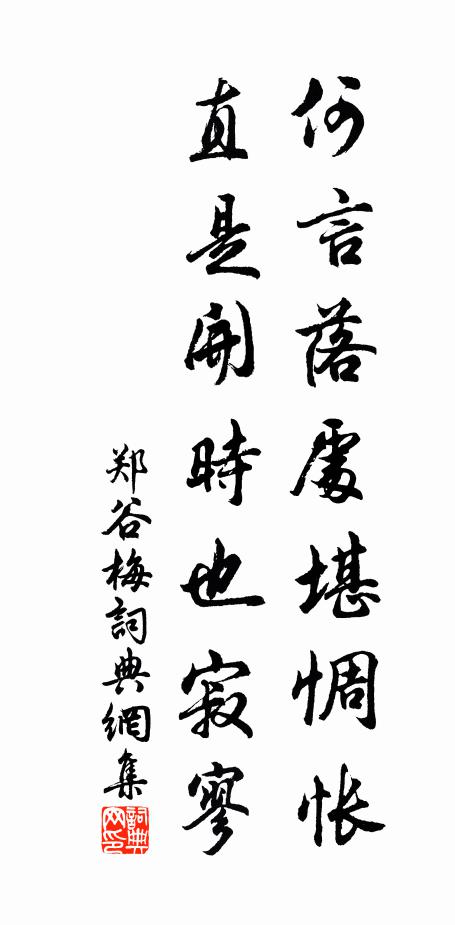 何言落處堪惆怅
直是開時也寂寥
郑谷梅詞典網集
詞典
网印